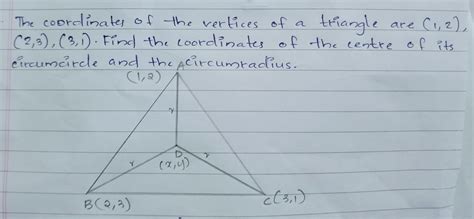 The coordinates of the vertices of a triangle are (1,2),
(2,3), (3,1). Find the coordinates of the centre of its
circumcircle and the circumradius.
A
(1,2)
r
D
r
(x,y)
r
B(2,3)
C(3,1)